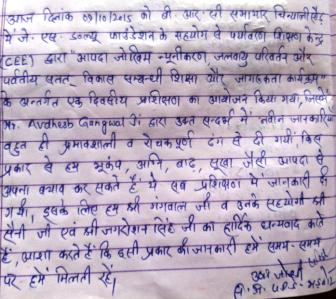 आज दिनांक 09/10/2015 को बी. आर. सी सभागार चिन्यालीसौड़
में जे. एस. डब्ल्यू फाउंडेशन के सहयोग से पर्यावरण शिक्षण केन्द्र
(CEE) द्वारा "आपदा जोखिम न्यूनीकरण, जलवायु परिवर्तन और
पर्वतीय सतत् विकास सम्बन्धी शिक्षा और जागरूकता कार्यक्रम
के अन्तर्गत एक दिवसीय प्रशिक्षण का आयोजन किया गया, जिसमें
Mr. Avdhesh Gangwal Ji द्वारा उक्त सन्दर्भ में नवीन जानकारियां
बहुत ही प्रभावशाली व रोचकपूर्ण ढंग से दी गयी, किस
प्रकार से हम भूकंप, अग्नि, बाढ़, सूखा जैसी आपदा से
अपना बचाव कर सकते हैं, ये सब प्रशिक्षण में जानकारी दी
गयी, इसके लिए हम श्री गंगवाल जी व उनके सहयोगी श्री
सैनी जी एवं श्री जगमोहन सिंह जी का हार्दिक धन्यवाद करते
हैं, आशा करते हैं कि इसी प्रकार की जानकारी हमें समय-समय
पर हमें मिलती रहें।
जोशी